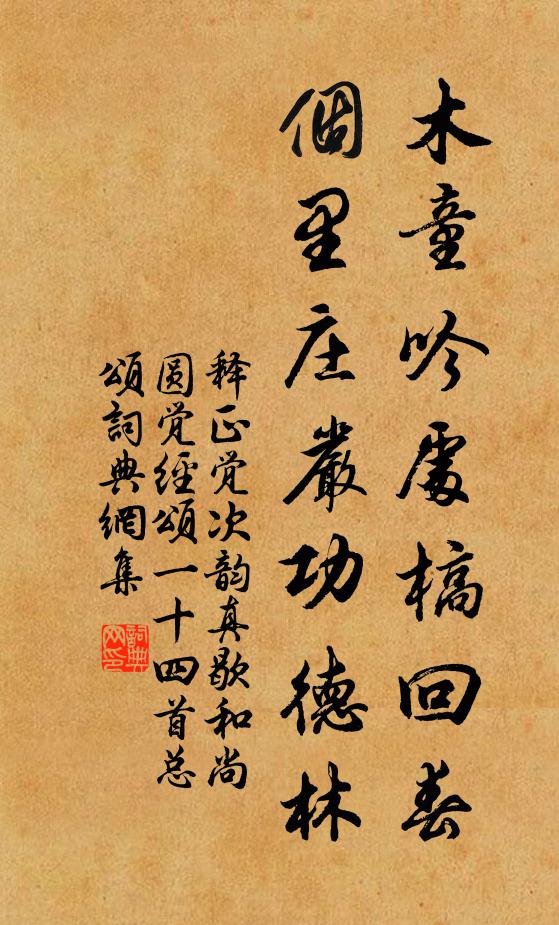 木童吟處槁回春
個里庄嚴功德林
释正觉次韵真歇和尚
圆觉經頌一十四首总
頌詞典網集
詞典网印